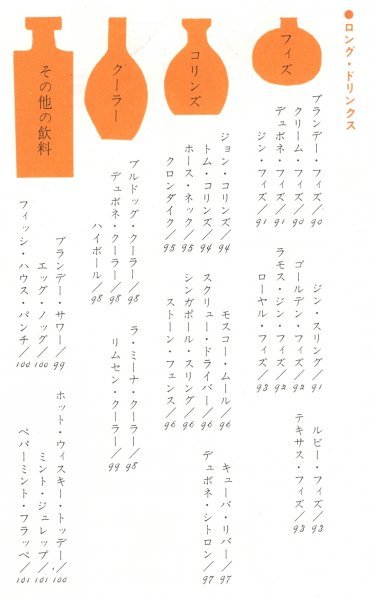 ●ロング・ドリンクス
フィズ
ブランデー・フィズ/90
クリーム・フィズ/90
デュボネ・フィズ/91
ジン・フィズ/91
ジン・スリング/91
ゴールデン・フィズ/92
ラモス・ジン・フィズ/92
ローヤル・フィズ/93
ルビー・フィズ/93
テキサス・フィズ/93
コリンズ
ジョン・コリンズ/94
トム・コリンズ/94
ホース・ネック/95
クロンダイク/95
モスコー・ムール/96
スクリュー・ドライバー/96
シンガポール・スリング/96
ストーン・フェンス/96
キューバ・リバー/97
デュボネ・シトロン/97
クーラー
ブルドッグ・クーラー/98
デュボネ・クーラー/98
ハイボール/98
ラ・ミーナ・クーラー/98
リムセン・クーラー/99
その他の飲料
ブランデー・サワー/99
エッグ・ノッグ/100
フィッシ・ハウス・パンチ/100
ホット・ウィスキー・トッデー/100
ミント・ジュレップ/101
ペパーミント・フラッペ/101